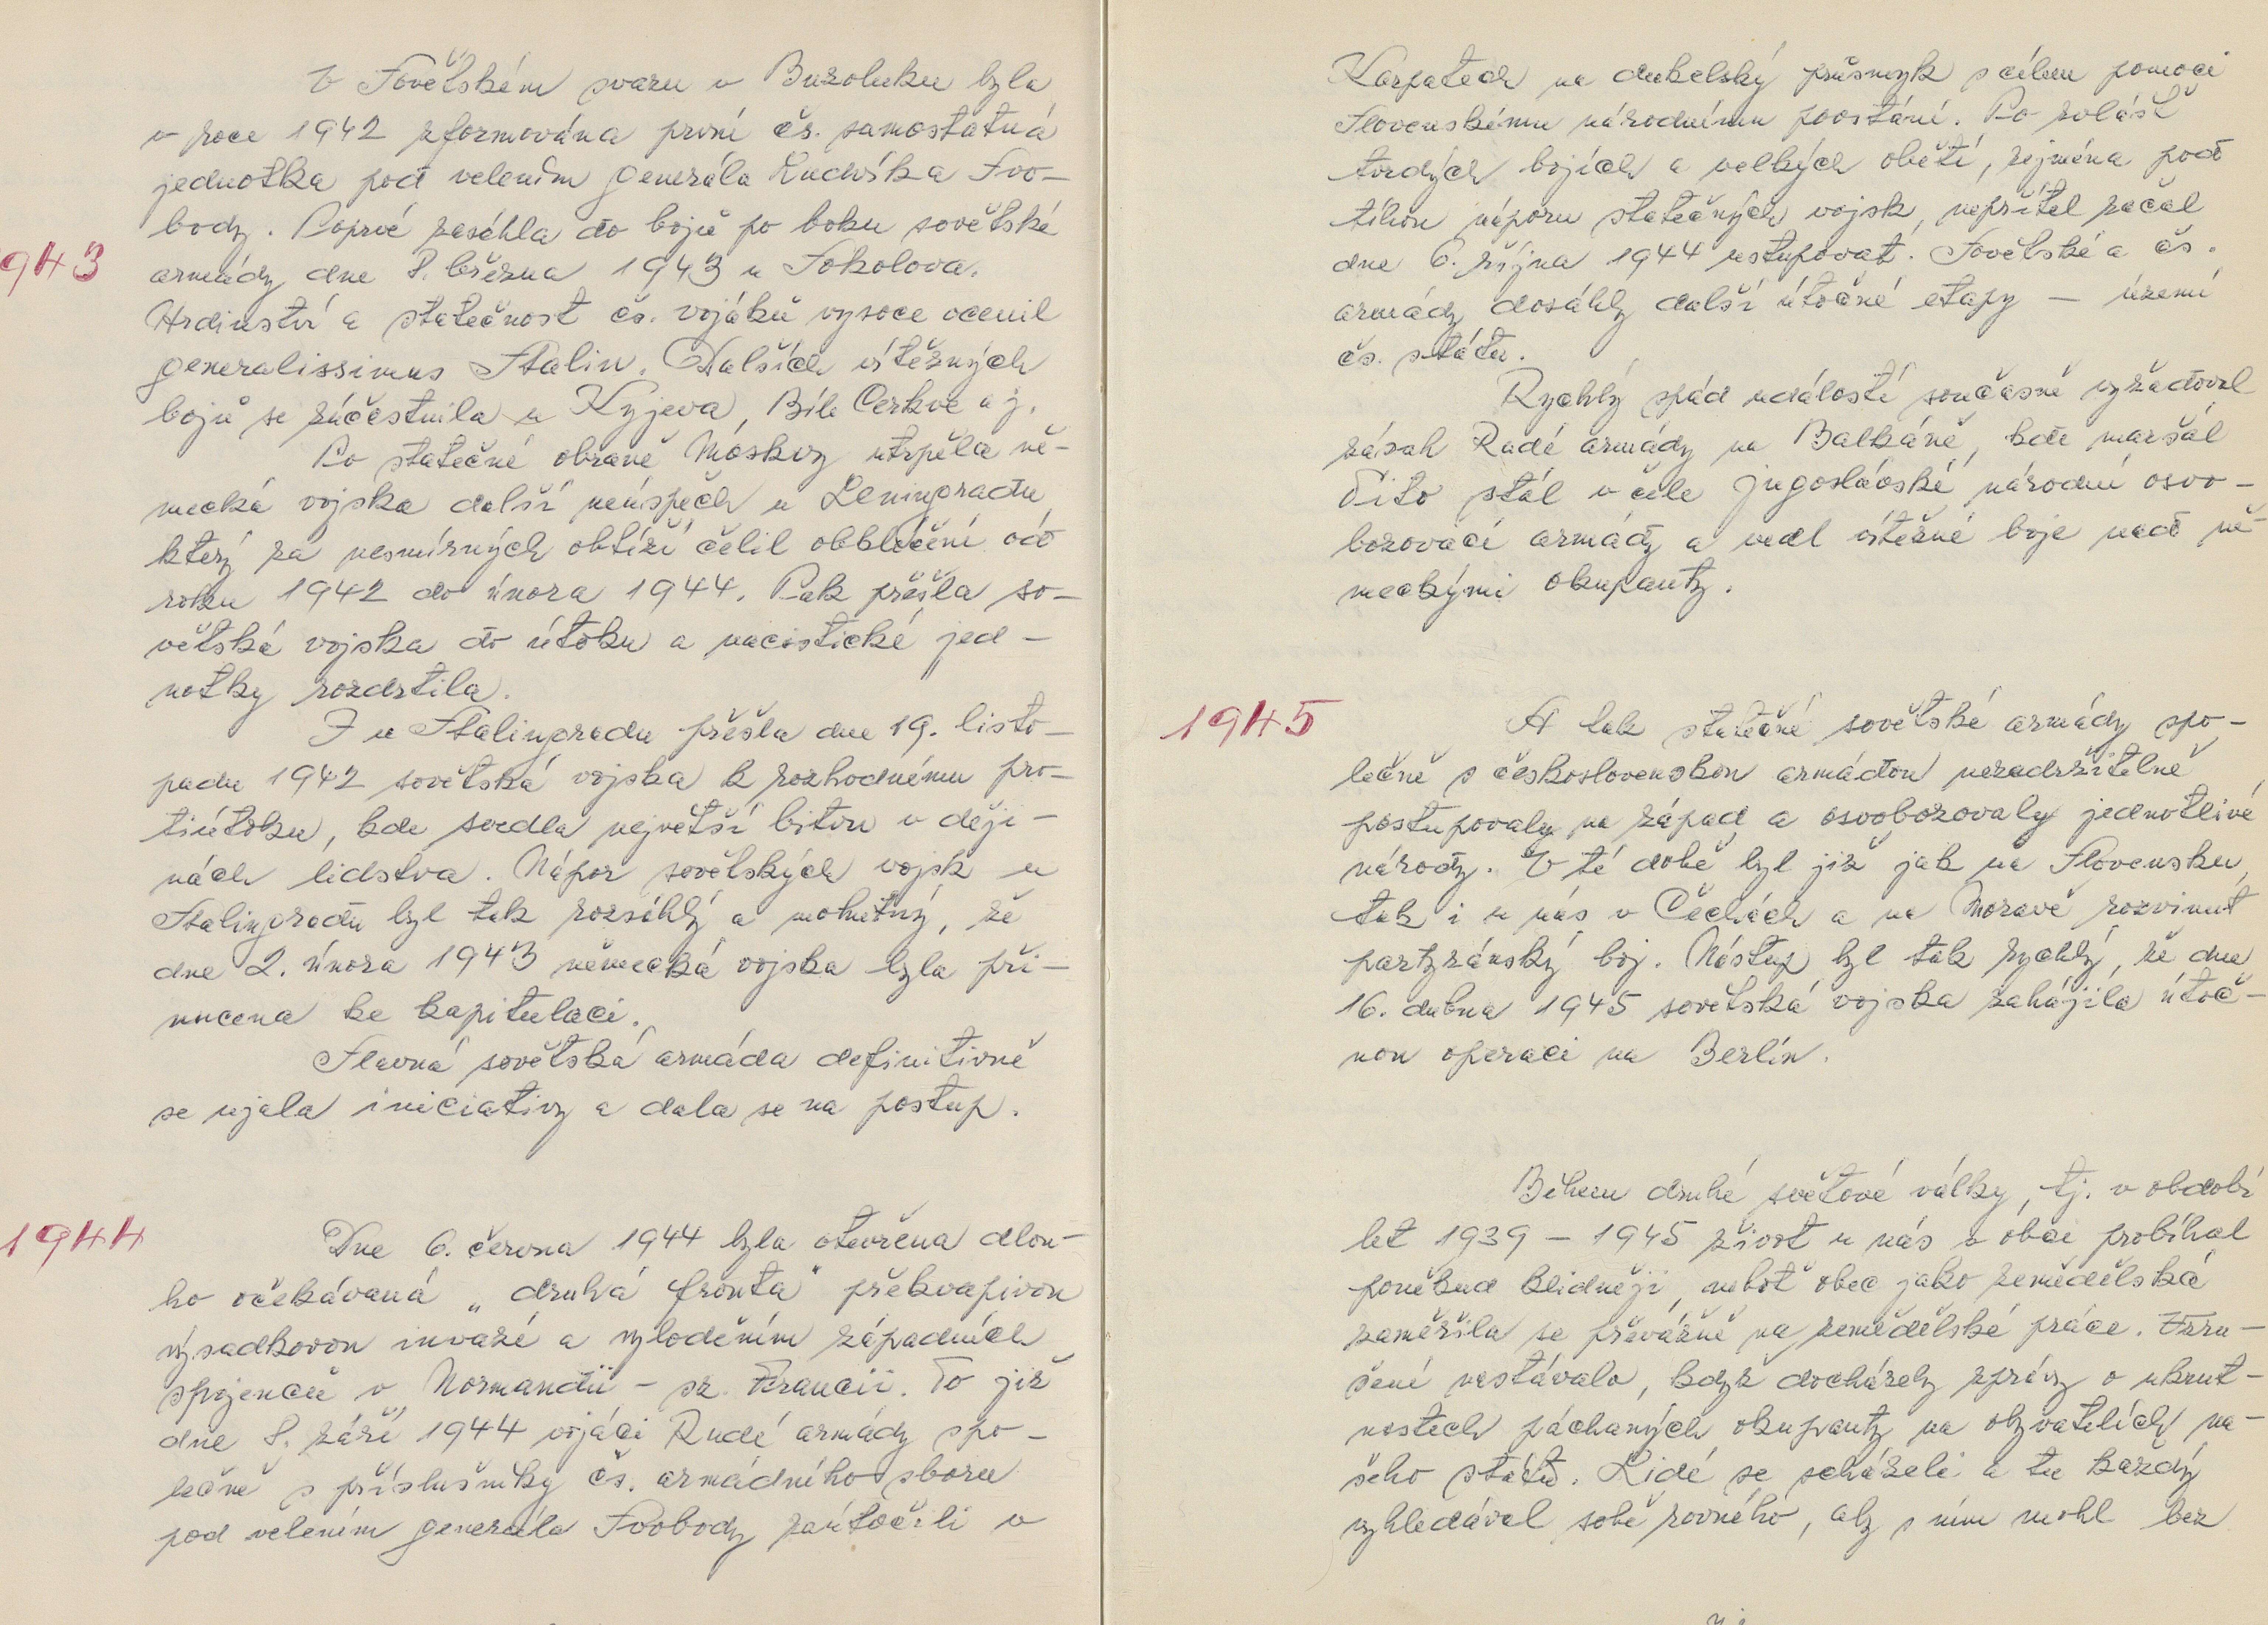 V Sovětském svazu v Buzoluku byla
v roce 1942 zformována první čs. samostatná
jednotka pod velením generála Ludvíka Svo-
body. Poprvé zasáhla do bojů po boku sovětské
1943
armády dne 8. března 1943 u Sokolova.
Hrdinství a statečnost čs. vojáků vysoce ocenil
generalissimus Stalin. Dalších vítězných
bojů se zúčastnila u Kyjeva, Bílé Cerkve a j.
Po statečné obraně Moskvy utrpěla ně-
mecká vojska další neúspěch u Leningradu,
který za nesmírných obtíží čelil obklíčení od
roku 1942 do února 1944. Pak přešla so-
větská vojska do útoku a nacistické jed-
notky rozdrtila.
I u Stalingradu přešla dne 19. listo-
padu 1942 sovětská vojska k rozhodnému pro-
tiútoku, kde svedla největší bitvu v ději-
nách lidstva. Nápor sovětských vojsk u
Stalingradu byl tak rozsáhlý a mohutný, že
dne 2. února 1943 německá vojska byla při-
nucena ke kapitulaci.
Slavná sovětská armáda definitivně
se ujala iniciativy a dala se na postup.
1944
Dne 6. června 1944 byla otevřena dlou-
ho očekávaná „druhá fronta" překvapivou
výsadkovou invazí a vyloděním západních
spojenců v Normandii - sz. Francii. To již
dne 8. září 1944 vojáci Rudé armády spo-
lečně s příslušníky čs. armádního sboru
pod velením generála Svobody zaútočili v
Karpatech na dukelský průsmyk s cílem pomoci
Slovenskému národnímu povstání. Po zvlášť
tvrdých bojích a velkých obětí, zejména pod
tíhou náporu statečných vojsk, nepřítel začal
dne 6. října 1944 ustupovat. Sovětské a čs.
armády dosáhly další útočné etapy - území
čs. státu.
Rychlý spád událostí současně vyžadoval
zásah Rudé armády na Balkáně, kde maršál
Tito stál v čele jugoslávské národní osvo-
bozovací armády a vedl vítězné boje nad ně-
meckými okupanty.
1945
A tak statečné sovětské armády spo-
lečně s československou armádou nezadržitelně
postupovaly na západ a osvobozovaly jednotlivé
národy. V té době byl již jak na Slovensku,
tak i u nás v Čechách a na Moravě rozvinut
partyzánský boj. Nástup byl tak rychlý, že dne
16. dubna 1945 sovětská vojska zahájila útoč-
nou operaci na Berlín.
Během druhé světové války, tj. v období
let 1939 - 1945 život u nás v obci probíhal
poněkud klidněji, neboť obec jako zemědělská
zaměřila se převážně na zemědělské práce. Vzru-
šení nastávalo, když docházely zprávy o ukrut-
nostech páchaných okupanty na obyvatelích na-
šeho státu. Lidé se scházeli a tu každý
vyhledával sobě rovného, aby s ním mohl bez